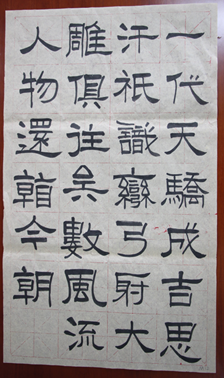 一代天驕成吉思
汗祇識彎弓射大
雕俱往矣數風流
人物還看今朝